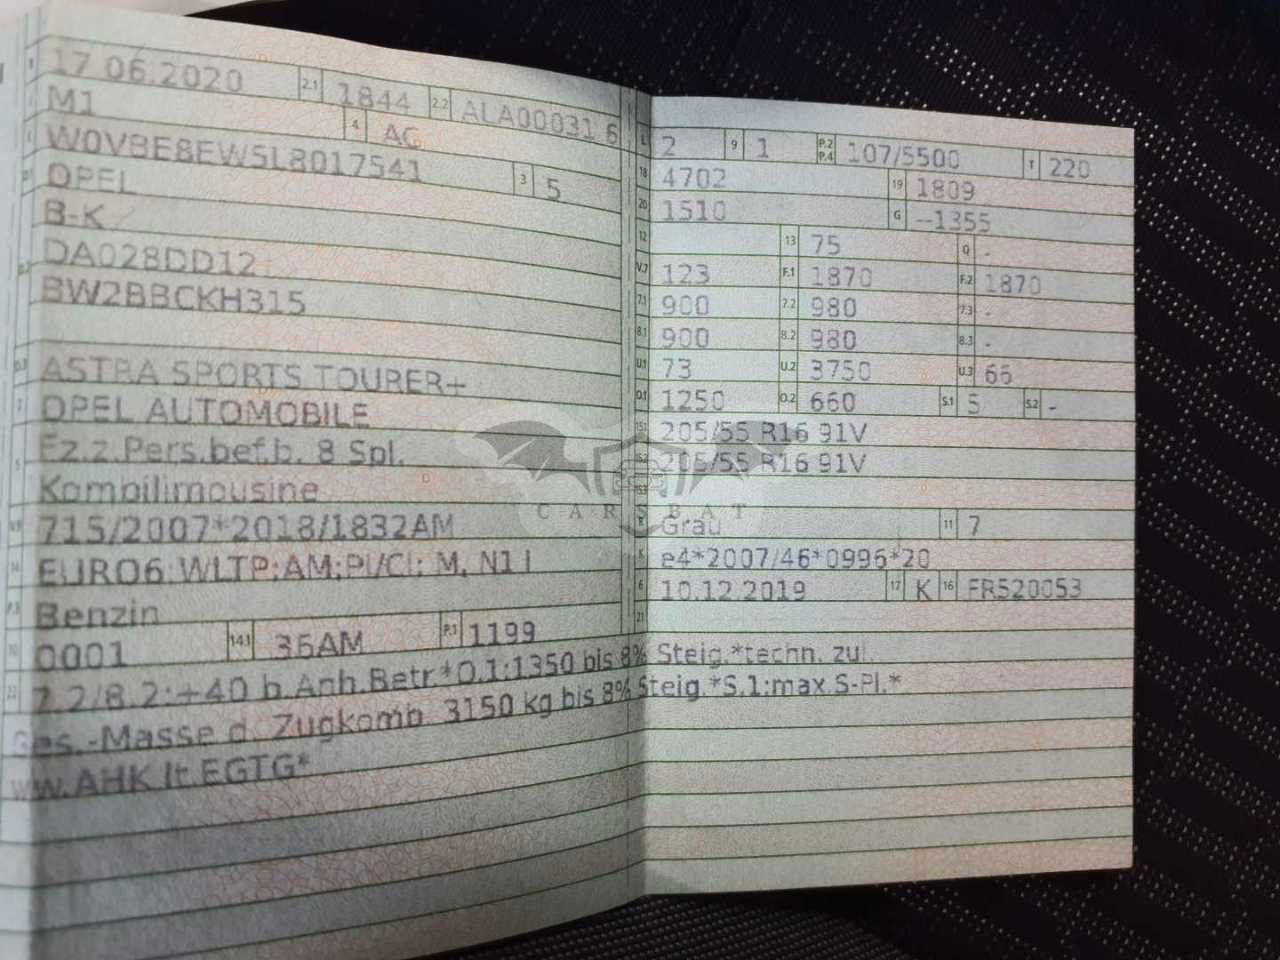 17 06.2020 2.1 1844 2.2 ALA00031 6
M1 4 AG
W0VBE8EW5L8017541 3 5
OPEL
B-K
DA028DD12
BW2BBCKH315
ASTRA SPORTS TOURER+
OPEL AUTOMOBILE
Fz.z.Pers.bef.b. 8 Spl.
Kombilimousine
715/2007*2018/1832AM
EURO6;WLTP;AM;PI/CI; M, N1 I
Benzin
0001 14.1 36AM P.1 1199
7.2/8.2:+40 b.Anh.Betr*O.1:1350 bis 8% Steig.*techn. zul.
Ges.-Masse d. Zugkomb 3150 kg bis 8% Steig.*S.1:max.S-Pl.*
ww.AHK lt.EGTG*
L 2 9 1 P.2 P.4 107/5500 T 220
18 4702 19 1809
20 1510 G --1355
12 13 75 Q -
V.7 123 F.1 1870 F.2 1870
7.1 900 7.2 980 7.3 -
8.1 900 8.2 980 8.3 -
U.1 73 U.2 3750 U.3 66
O.1 1250 O.2 660 S.1 5 S.2 -
15.1 205/55 R16 91V
15.2 205/55 R16 91V
15.3
CARSBAT
R Grau 11 7
K e4*2007/46*0996*20
6 10.12.2019 17 K 16 FR520053
21